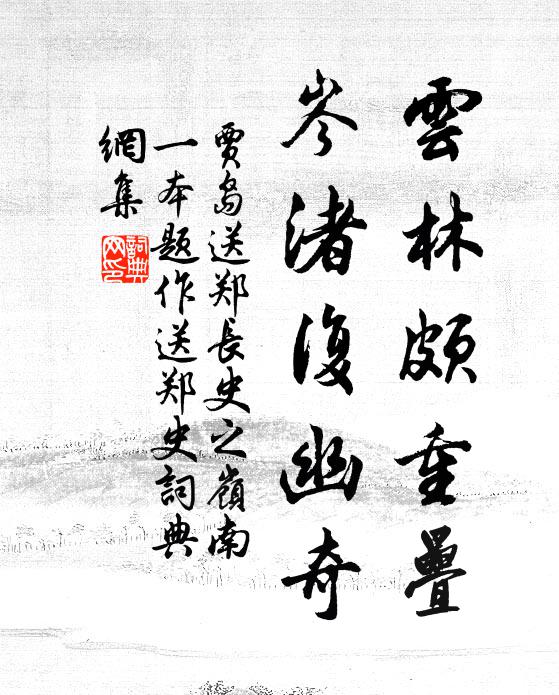 雲林頗重疊
岑渚復幽奇
賈島送郑長史之嶺南
一本題作送郑史詞典
網集
詞典
网印